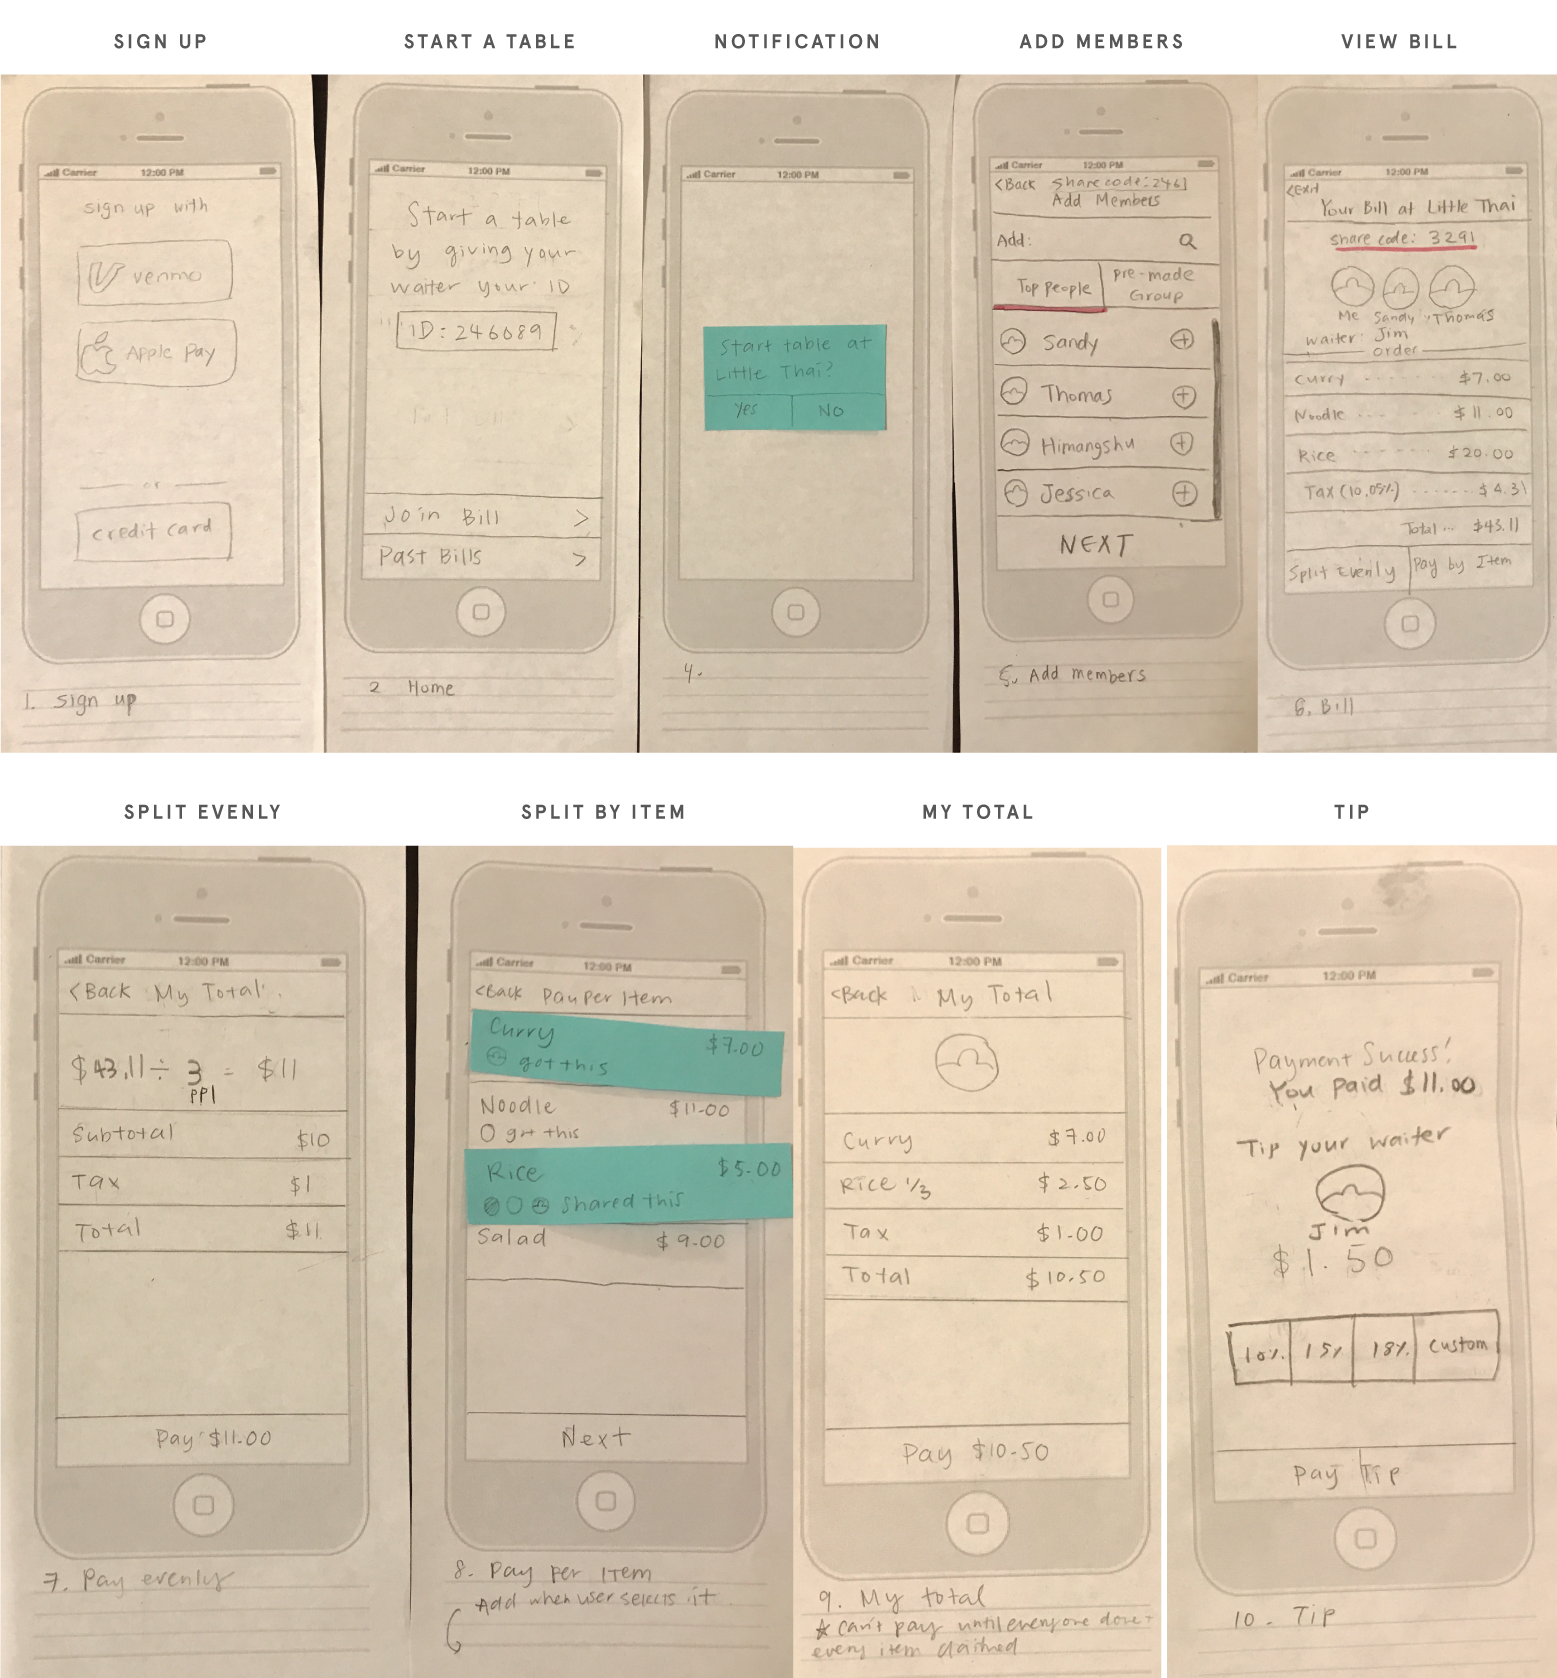 SIGN UP
START A TABLE
NOTIFICATION
ADD MEMBERS
VIEW BILL
Carrier 12:00 PM
sign up with
venmo
Apple Pay
or
credit card
1. Sign up
Carrier 12:00 PM
Start a table
by giving your
waiter your ID
ID: 246089
Join Bill >
Past Bills >
2 Home
Carrier 12:00 PM
Start table at
Little Thai?
Yes NO
4.
Carrier 12:00 PM
<Back Share code: 2461
Add Members
Add:
Top people
pre-made
Group
Sandy +
Thomas +
Himangshu +
Jessica +
NEXT
5. Add members
Carrier 12:00 PM
<Exit
Your Bill at Little Thai
share code: 3291
Me Sandy Thomas
waiter: Jim
order
Curry ------ $7.00
Noodle --- $11.00
Rice ------ $20.00
Tax (10.05%) ------ $4.31
Total ... $43.11
Split Evenly
Pay by Item
6. Bill
SPLIT EVENLY
SPLIT BY ITEM
MY TOTAL
TIP
Carrier 12:00 PM
<Back My Total
$43.11 ÷ 3 = $11
ppl
Subtotal $10
Tax $1
Total $11
Pay $11.00
7. Pay evenly
Carrier 12:00 PM
<Back Pay Per Item
Curry $7.00
got this
Noodle $11.00
got this
Rice $5.00
shared this
Salad $9.00
Next
8. Pay Per Item
Add when user selects it
Carrier 12:00 PM
<Back My Total
Curry $7.00
Rice 1/3 $2.50
Tax $1.00
Total $10.50
Pay $10.50
9. My total
* can't pay until everyone done +
every item claimed
Carrier 12:00 PM
Payment Success!
You paid $11.00
Tip your waiter
Jim
$1.50
10% 15% 18% Custom
Pay Tip
10. Tip